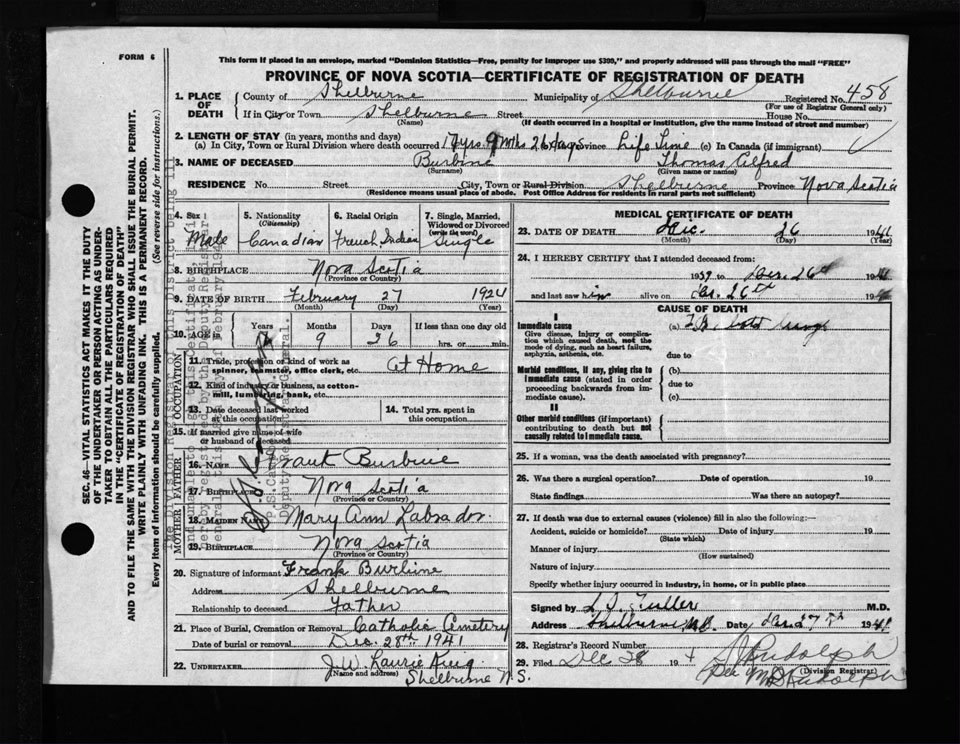 FORM 6
This form if placed in an envelope, marked "Dominion Statistics—Free, penalty for improper use $300," and properly addressed will pass through the mail "FREE"
PROVINCE OF NOVA SCOTIA—CERTIFICATE OF REGISTRATION OF DEATH
1. PLACE OF DEATH
County of Shelburne Municipality of Shelburne Registered No. 458
(For use of Registrar General only)
If in City or Town Shelburne Street House No.
(Name) (If death occurred in a hospital or institution, give the name instead of street and number)
2. LENGTH OF STAY (in years, months and days)
(a) In City, Town or Rural Division where death occurred 17 yrs. 9 Mths 26 days Life Time (c) In Canada (if immigrant)
3. NAME OF DECEASED Burbine Thomas Alfred
(Surname) (Given name or names)
RESIDENCE No. Street City, Town or Rural Division Shelburne Province Nova Scotia
(Residence means usual place of abode. Post Office Address for residents in rural parts not sufficient)
4. Sex Male
5. Nationality (Citizenship) Canadian
6. Racial Origin French Indian
7. Single, Married, Widowed or Divorced (write the word) Single
8. BIRTHPLACE Nova Scotia
(Province or Country)
9. DATE OF BIRTH February 27 1924
(Month) (Day) (Year)
10. AGE Years Months 9 Days 26 If less than one day old hrs. or min.
OCCUPATION
11. Trade, profession or kind of work as spinner, teamster, office clerk, etc. At Home
12. Kind of industry or business, as cotton-mill, lumbering, bank, etc.
13. Date deceased last worked at this occupation
14. Total yrs. spent in this occupation
15. If married give name of wife or husband of deceased
FATHER
16. NAME Frank Burbine
17. BIRTHPLACE Nova Scotia
(Province or Country)
MOTHER
18. MAIDEN NAME Mary Ann Labrador
19. BIRTHPLACE Nova Scotia
(Province or Country)
20. Signature of informant Frank Burbine
Address Shelburne
Relationship to deceased Father
21. Place of Burial, Cremation or Removal Catholic Cemetery
Date of burial or removal Dec. 28th 1941
22. UNDERTAKER J.W. Laurie King
(Name and address) Shelburne N.S.
MEDICAL CERTIFICATE OF DEATH
23. DATE OF DEATH Dec. 26 1941
(Month) (Day) (Year)
24. I HEREBY CERTIFY that I attended deceased from:
1939 to Dec 26th 1941
and last saw him alive on Dec. 26th 194
CAUSE OF DEATH
I
Immediate cause (a)
Give disease, injury or complication which caused death, not the mode of dying, such as heart failure, asphyxia, asthenia, etc.
due to
Morbid conditions, if any, giving rise to immediate cause (stated in order proceeding backwards from immediate cause).
(b)
due to
(c)
II
Other morbid conditions (if important) contributing to death but not causally related to immediate cause.
25. If a woman, was the death associated with pregnancy?
26. Was there a surgical operation? Date of operation 19
State findings Was there an autopsy?
27. If death was due to external causes (violence) fill in also the following:—
Accident, suicide or homicide? Date of injury 19
(State which)
Manner of injury
(How sustained)
Nature of injury
Specify whether injury occurred in industry, in home, or in public place
Signed by L. J. Fuller M.D.
Address Shelburne N.S. Date Dec 27th 1941
28. Registrar's Record Number
29. Filed Dec 28 19 Rudolph
(Division Registrar)
Per M Rudolph
SEC. 46—VITAL STATISTICS ACT MAKES IT THE DUTY
OF THE UNDERTAKER OR PERSON ACTING AS UNDER-
TAKER TO OBTAIN ALL THE PARTICULARS REQUIRED
IN THE "CERTIFICATE OF REGISTRATION OF DEATH"
AND TO FILE THE SAME WITH THE DIVISION REGISTRAR WHO SHALL ISSUE THE BURIAL PERMIT.
WRITE PLAINLY WITH UNFADING INK. THIS IS A PERMANENT RECORD.
Every item of information should be carefully supplied. (See reverse side for instructions.)